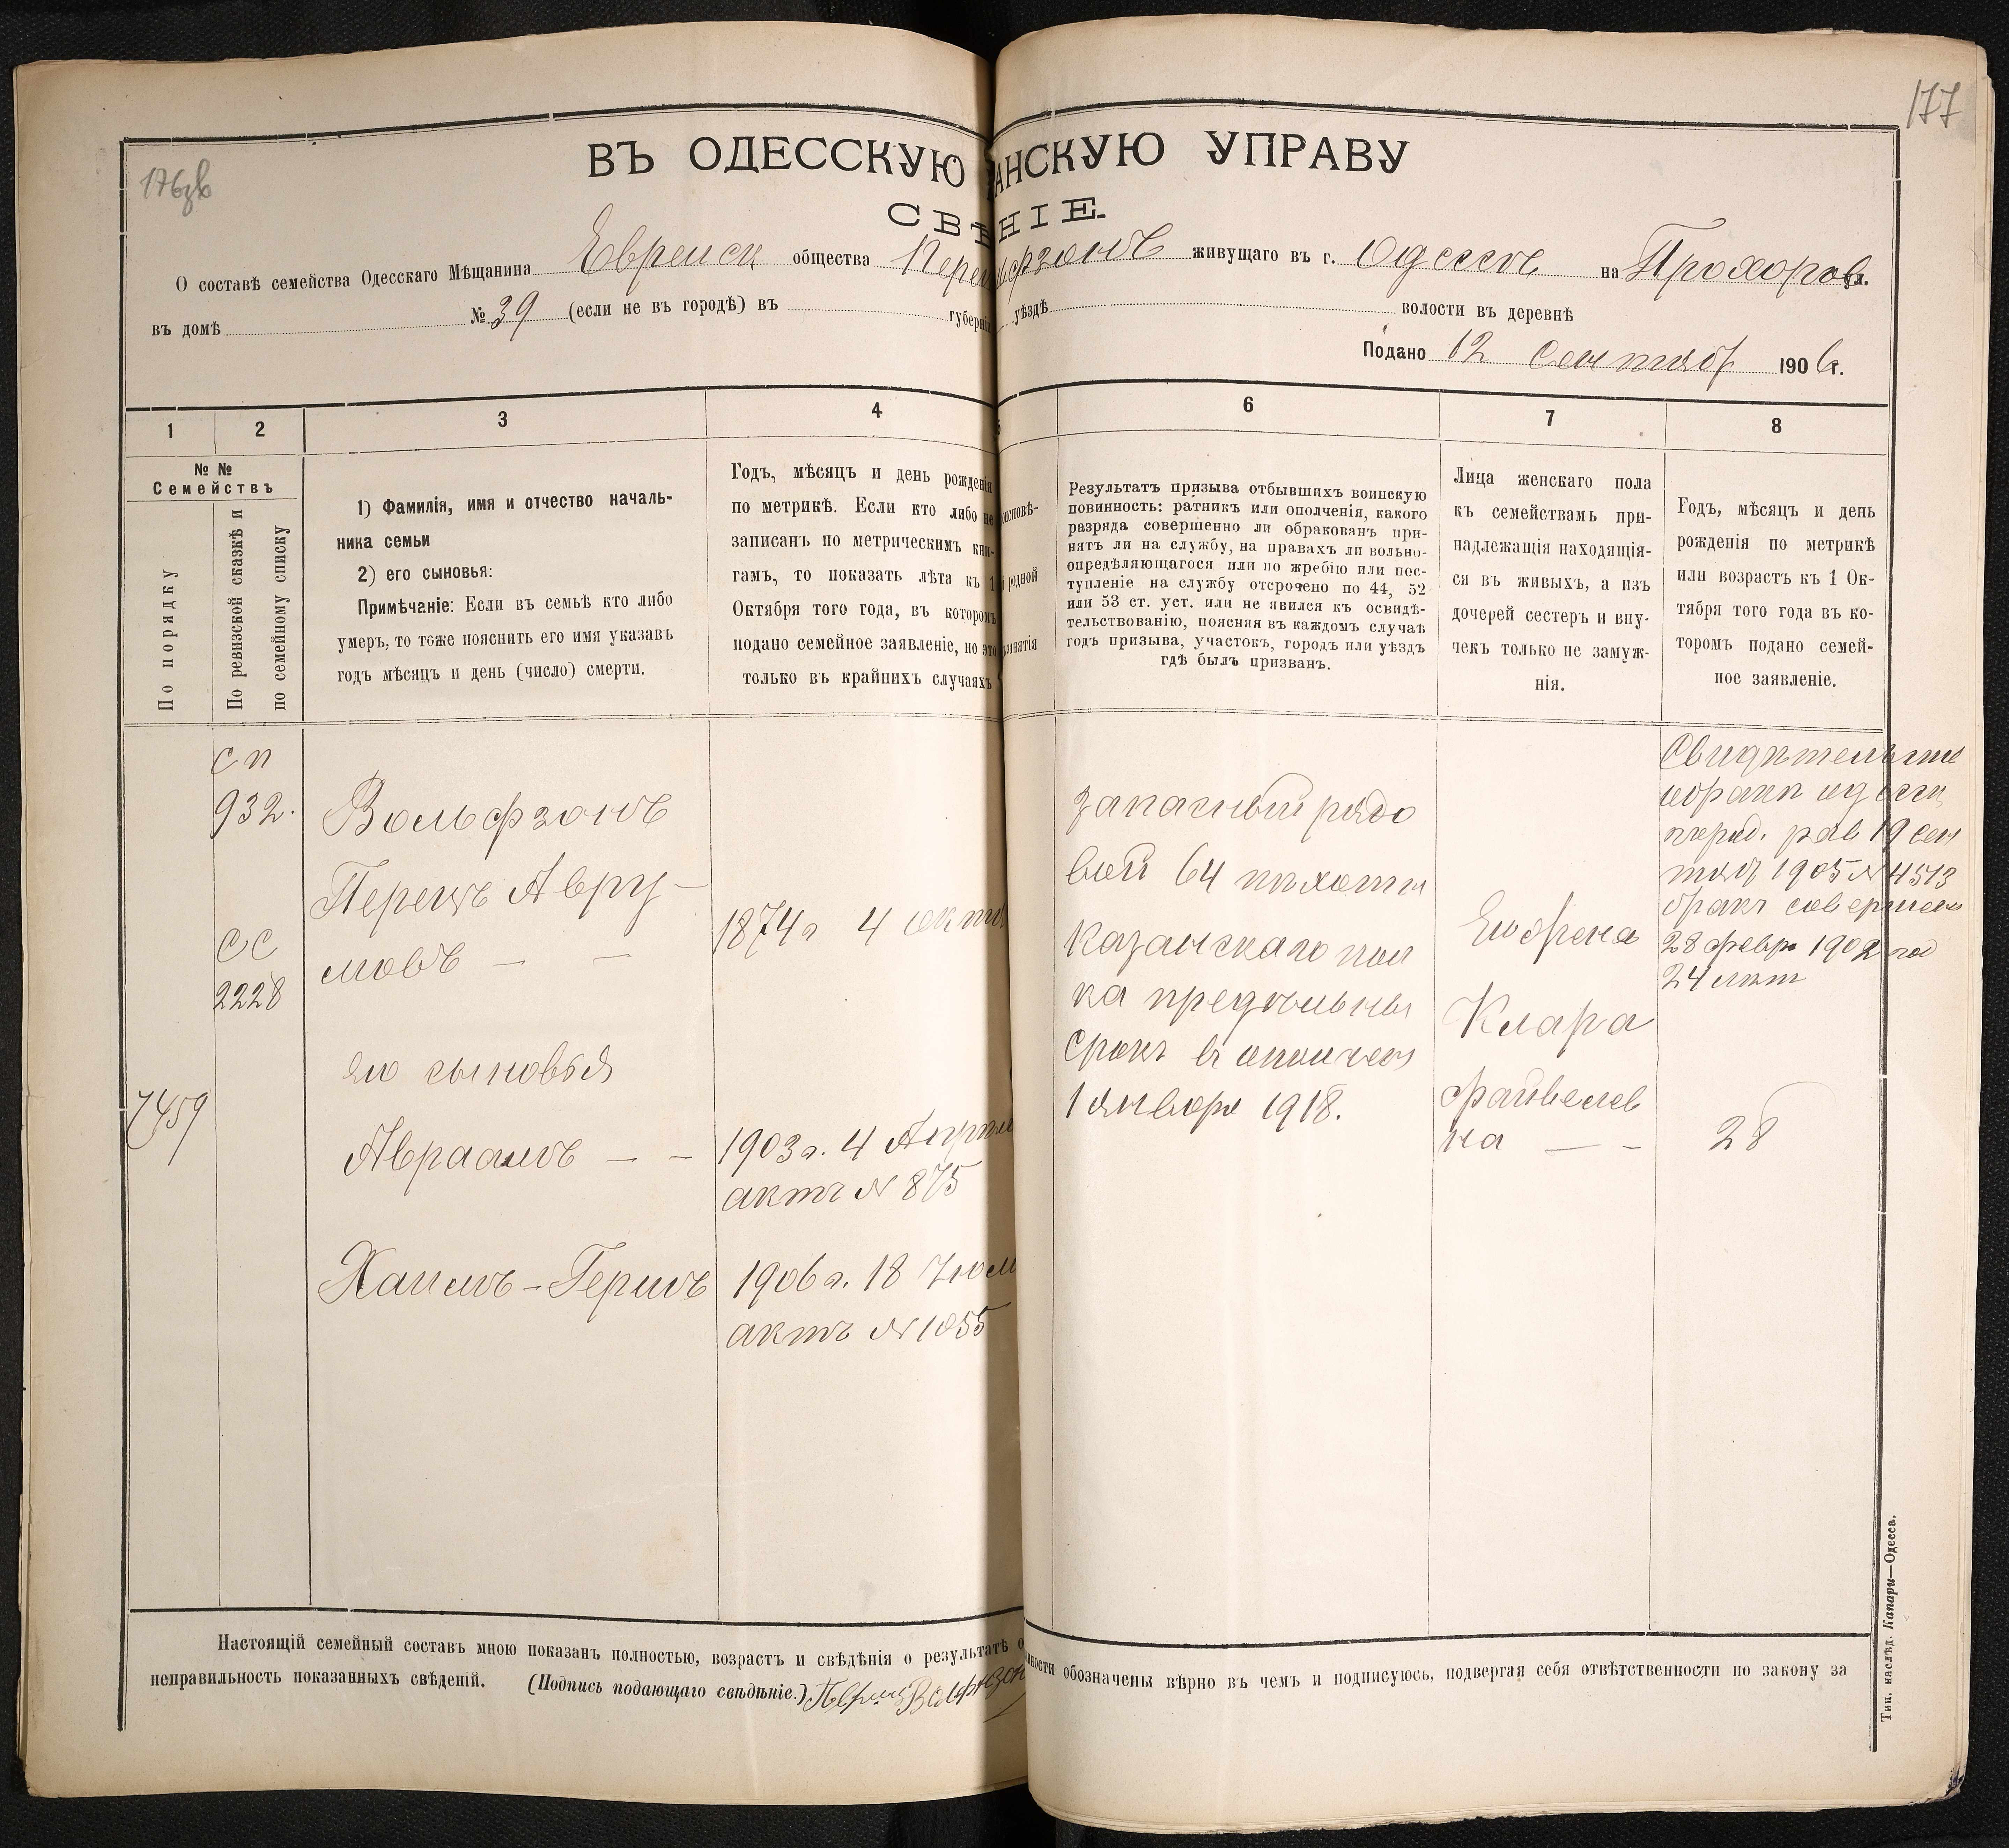 177
176зв
ВЪ ОДЕССКУЮ АНСКУЮ УПРАВУ
СВѢНІЕ.
О составѣ семейства Одесскаго Мѣщанина Еврейск общества Перец фзонъ живущаго въ г. Одессѣ на Прохоров ул.
въ домѣ № 39 (если не въ городѣ) въ губерніи уѣздѣ волости въ деревнѣ
Подано 12 Сентяб 1906 г.
1 2 3 4 5 6 7 8
№ №
Семействъ
По порядку
По ревизской сказкѣ и
по семейному списку
1) Фамилія, имя и отчество началь-
ника семьи
2) его сыновья:
Примѣчаніе: Если въ семьѣ кто либо
умеръ, то тоже пояснить его имя указавъ
годъ мѣсяцъ и день (число) смерти.
Годъ, мѣсяцъ и день рожденія
по метрикѣ. Если кто либо не
записанъ по метрическимъ кни-
гамъ, то показать лѣта къ 1
Октября того года, въ которомъ
подано семейное заявленіе, но это
только въ крайнихъ случаяхъ
исповѣ-
родной
занятія
Результатъ призыва отбывшихъ воинскую
повинность: ратникъ или ополченія, какого
разряда совершенно ли обракованъ при-
нятъ ли на службу, на правахъ ли вольно-
опредѣляющагося или по жребію или пос-
тупленіе на службу отсрочено по 44, 52
или 53 ст. уст. или не явился къ освидѣ-
тельствованію, поясняя въ каждомъ случаѣ
годъ призыва, участокъ, городъ или уѣздъ
гдѣ былъ призванъ.
Лица женскаго пола
къ семействамъ при-
надлежащія находящія-
ся въ живыхъ, а изъ
дочерей сестеръ и вну-
чекъ только не замуж-
нія.
Годъ, мѣсяцъ и день
рожденія по метрикѣ
или возрастъ къ 1 Ок-
тября того года въ ко-
торомъ подано семей-
ное заявленіе.
7459
СП
932.
СС
2228
Вольфзонъ
Перецъ Авру-
мовъ — —
его сыновья
Авраамъ — —
Хаимъ-Гершъ
1874 г 4 октяб
1903 г. 4 Апрѣл
актъ № 875
1906 г. 18 Іюл
актъ № 1055
запасный рядо
вой 64 пѣхотн
Казанскаго пол
ка предѣльны
срокъ в ополчен
1 января 1918.
Его жена
Клара
Файвелев
на — —
Свидѣтельств
о бракѣ одесск
рав 19 сен
тяб 1905 № 4513
бракъ совершен
28 февр 1902 год
24 лѣт
28
Настоящій семейный составъ мною показанъ полностью, возрастъ и свѣдѣнія о результатѣ о нности обозначены вѣрно въ чемъ и подписуюсь, подвергая себя отвѣтственности по закону за
неправильность показанныхъ свѣденій. (Подпись подающаго свѣдѣніе.) Перецъ Вольфзон
Тип. наслѣд. Капари—Одесса.